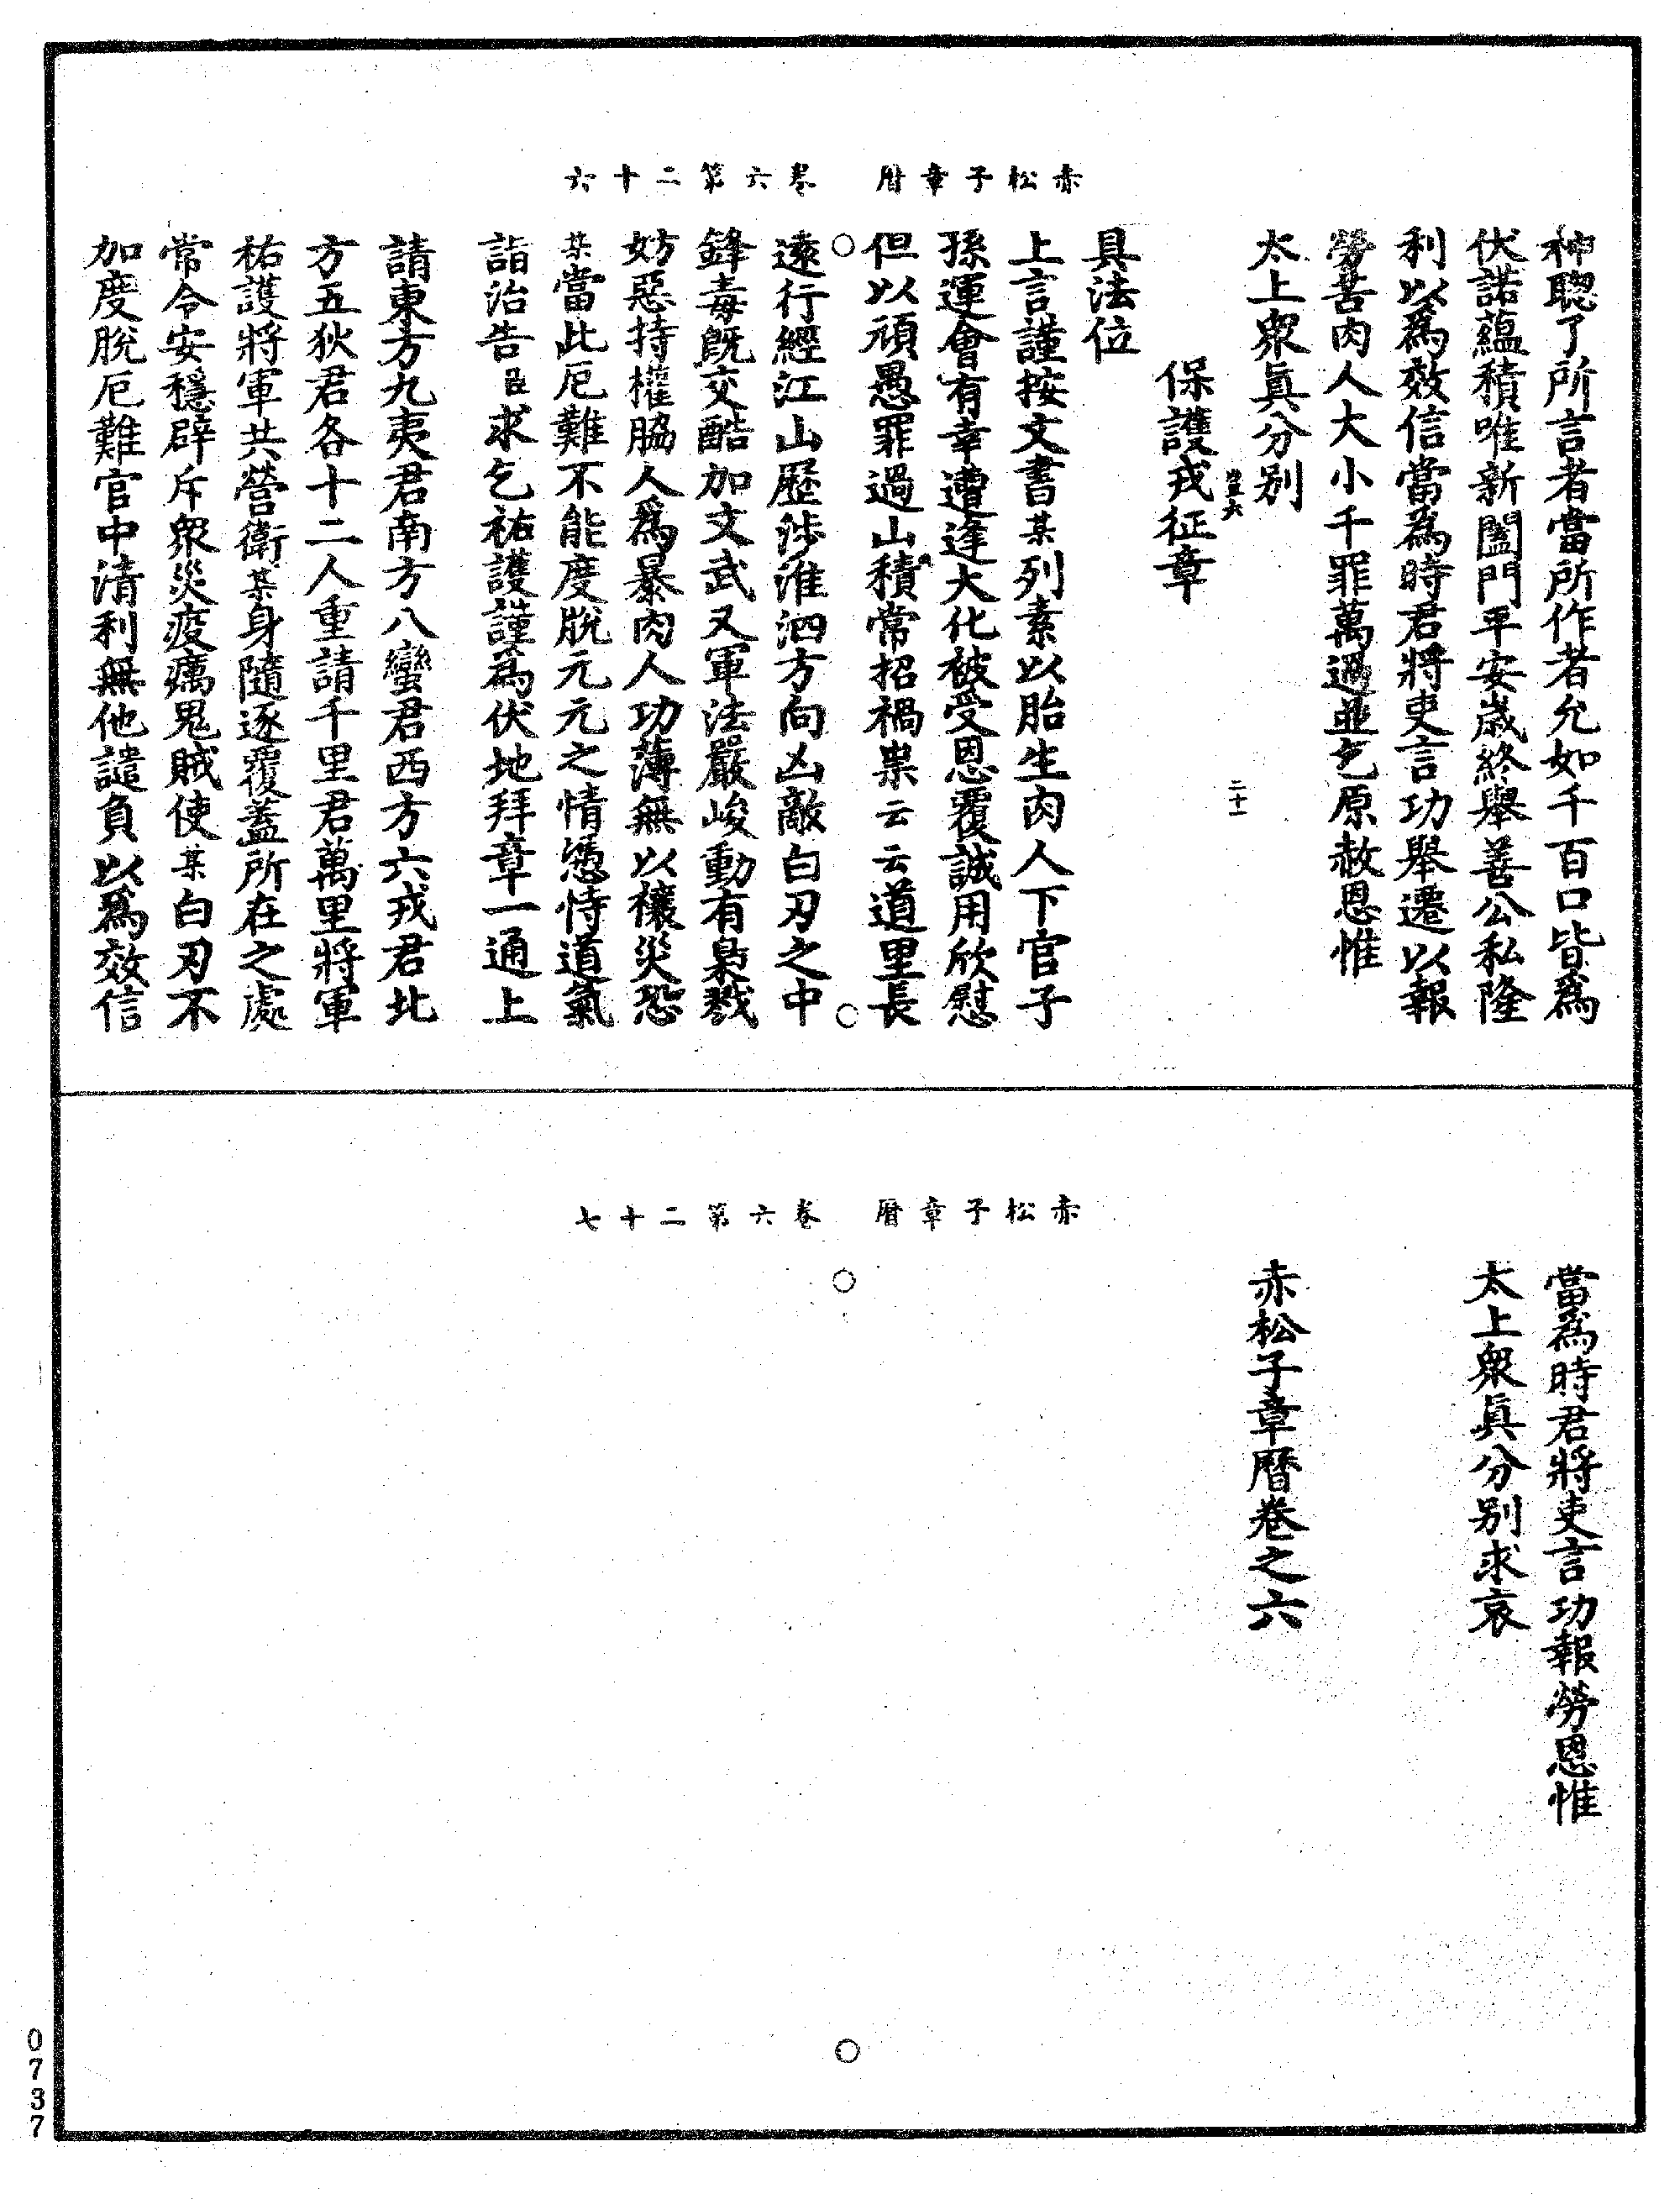 赤松子章曆　卷六第二十六
神聰了所言者當所作者允如千百口皆爲
伏諾蘊積唯新闔門平安歲終舉善公私隆
利以爲效信當爲時君將吏言功舉遷以報
勞苦肉人大小千罪萬過並乞原赦恩惟
太上衆眞分别
二十一
保護戎征章
具法位
上言謹按文書某列素以胎生肉人下官子
孫運會有幸遭逢大化被受恩覆誠用欣慰
但以頑愚罪過山積常招禍祟云云道里長
遠行經江山歷涉淮泗方向凶敵白刃之中
鋒毒旣交酷加文武又軍法嚴峻動有梟戮
妨惡持權脇人爲暴肉人功薄無以禳災恐
某當此厄難不能度脫元元之情憑恃道氣
詣治告臣求乞祐護謹爲伏地拜章一通上
請東方九夷君南方八蠻君西方六戎君北
方五狄君各十二人重請千里君萬里將軍
祐護將軍共營衛某身隨逐覆蓋所在之處
常令安穩辟斥衆災疫癘鬼賊使某白刃不
加度脫厄難官中清利無他譴負以爲效信
赤松子章曆　卷六第二十七
當爲時君將吏言功報勞恩惟
太上衆眞分别求哀
赤松子章曆卷之六
0737